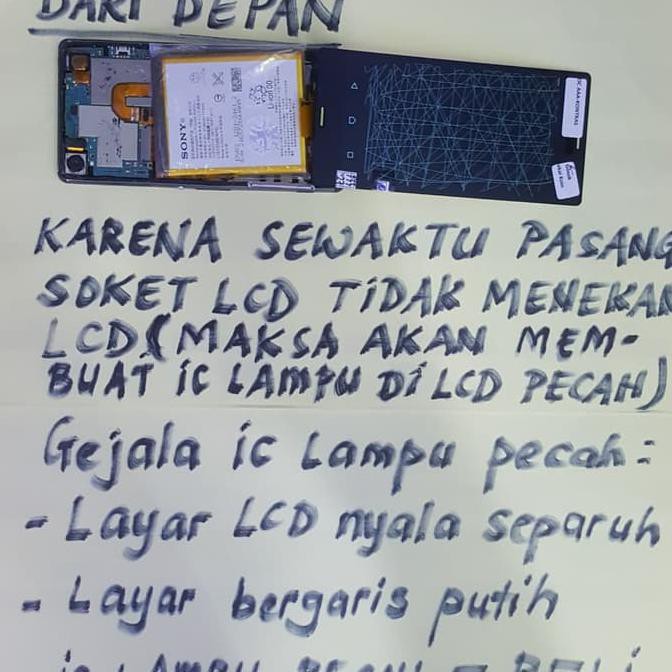 DARI DEPAN
SONY
Li-ion00
IC AAA-KONTRAS
KARENA SEWAKTU PASANG
SOKET LCD TIDAK MENEKAN
LCD (MAKSA AKAN MEM-
BUAT ic LAMPU Di LCD PECAH)
Gejala ic Lampu pecah:
- Layar LCD nyala separuh
- Layar bergaris putih